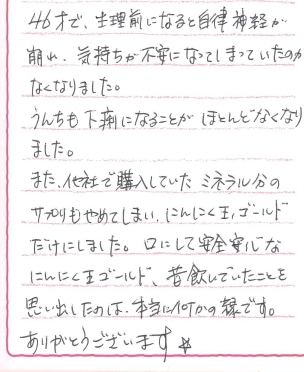 46才で、生理前になると自律神経が
崩れ、気持ちが不安になってしまっていたのが
なくなりました。
うんちも下痢になることがほとんどなくなり
ました。
また、他社で購入していたミネラル分の
サプリもやめてしまい、にんにく玉ゴールド
だけにしました。口にして安全安心な
にんにく玉ゴールド、昔飲んでいたことを
思い出したのは、本当に何かの縁です。
ありがとうございます☆